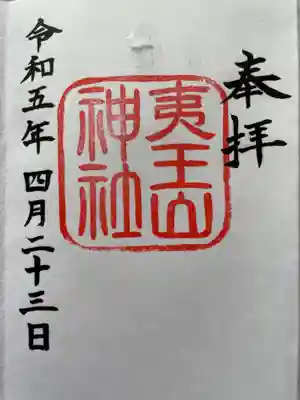 奉拝
夷王山
神社
令和五年 四月二十三日